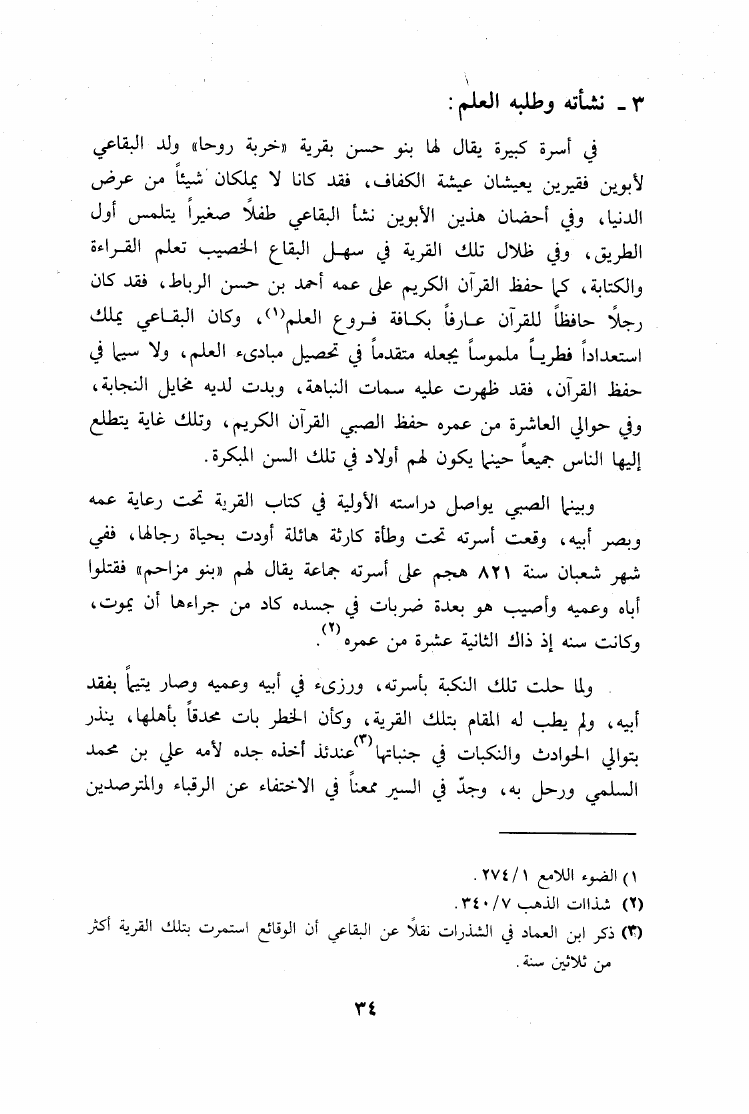 ٣ ـ نشأته وطلبه العلم:
في أسرة كبيرة يقال لها بنو حسن بقرية «خربة روحا» ولد البقاعي
لأبوين فقيرين يعيشان عيشة الكفاف، فقد كانا لا يملكان شيئاً من عرض
الدنيا، وفي أحضان هذين الأبوين نشأ البقاعي طفلاً صغيراً يتلمس أول
الطريق، وفي ظلال تلك القرية في سهل البقاع الخصيب تعلم القراءة
والكتابة، كما حفظ القرآن الكريم على عمه أحمد بن حسن الرباط، فقد كان
رجلاً حافظاً للقرآن عارفاً بكافة فروع العلم(١)، وكان البقاعي يملك
استعداداً فطرياً ملموساً يجعله متقدماً في تحصيل مبادىء العلم، ولا سيما في
حفظ القرآن، فقد ظهرت عليه سمات النباهة، وبدت لديه مخايل النجابة،
وفي حوالي العاشرة من عمره حفظ الصبي القرآن الكريم، وتلك غاية يتطلع
إليها الناس جميعاً حينما يكون لهم أولاد في تلك السن المبكرة.
وبينما الصبي يواصل دراسته الأولية في كتاب القرية تحت رعاية عمه
وبصر أبيه، وقعت أسرته تحت وطأة كارثة هائلة أودت بحياة رجالها، ففي
شهر شعبان سنة ٨٢١ هجم على أسرته جماعة يقال لهم «بنو مزاحم» فقتلوا
أباه وعميه وأصيب هو بعدة ضربات في جسده كاد من جراءها أن يموت،
وكانت سنه إذ ذاك الثانية عشرة من عمره(٢).
ولما حلت تلك النكبة بأسرته، ورزىء في أبيه وعميه وصار يتيماً بفقد
أبيه، ولم يطب له المقام بتلك القرية، وكأن الخطر بات محدقاً بأهلها، ينذر
بتوالي الحوادث والنكبات في جنباتها(٣)عندئذ أخذه جده لأمه علي بن محمد
السلمي ورحل به، وجدّ في السير ممعناً في الاختفاء عن الرقباء والمترصدين
١) الضوء اللامع ٢٧٤/١.
(٢) شذاات الذهب ٣٤٠/٧.
(٣) ذكر ابن العماد في الشذرات نقلاً عن البقاعي أن الوقائع استمرت بتلك القرية أكثر
من ثلاثين سنة.
٣٤